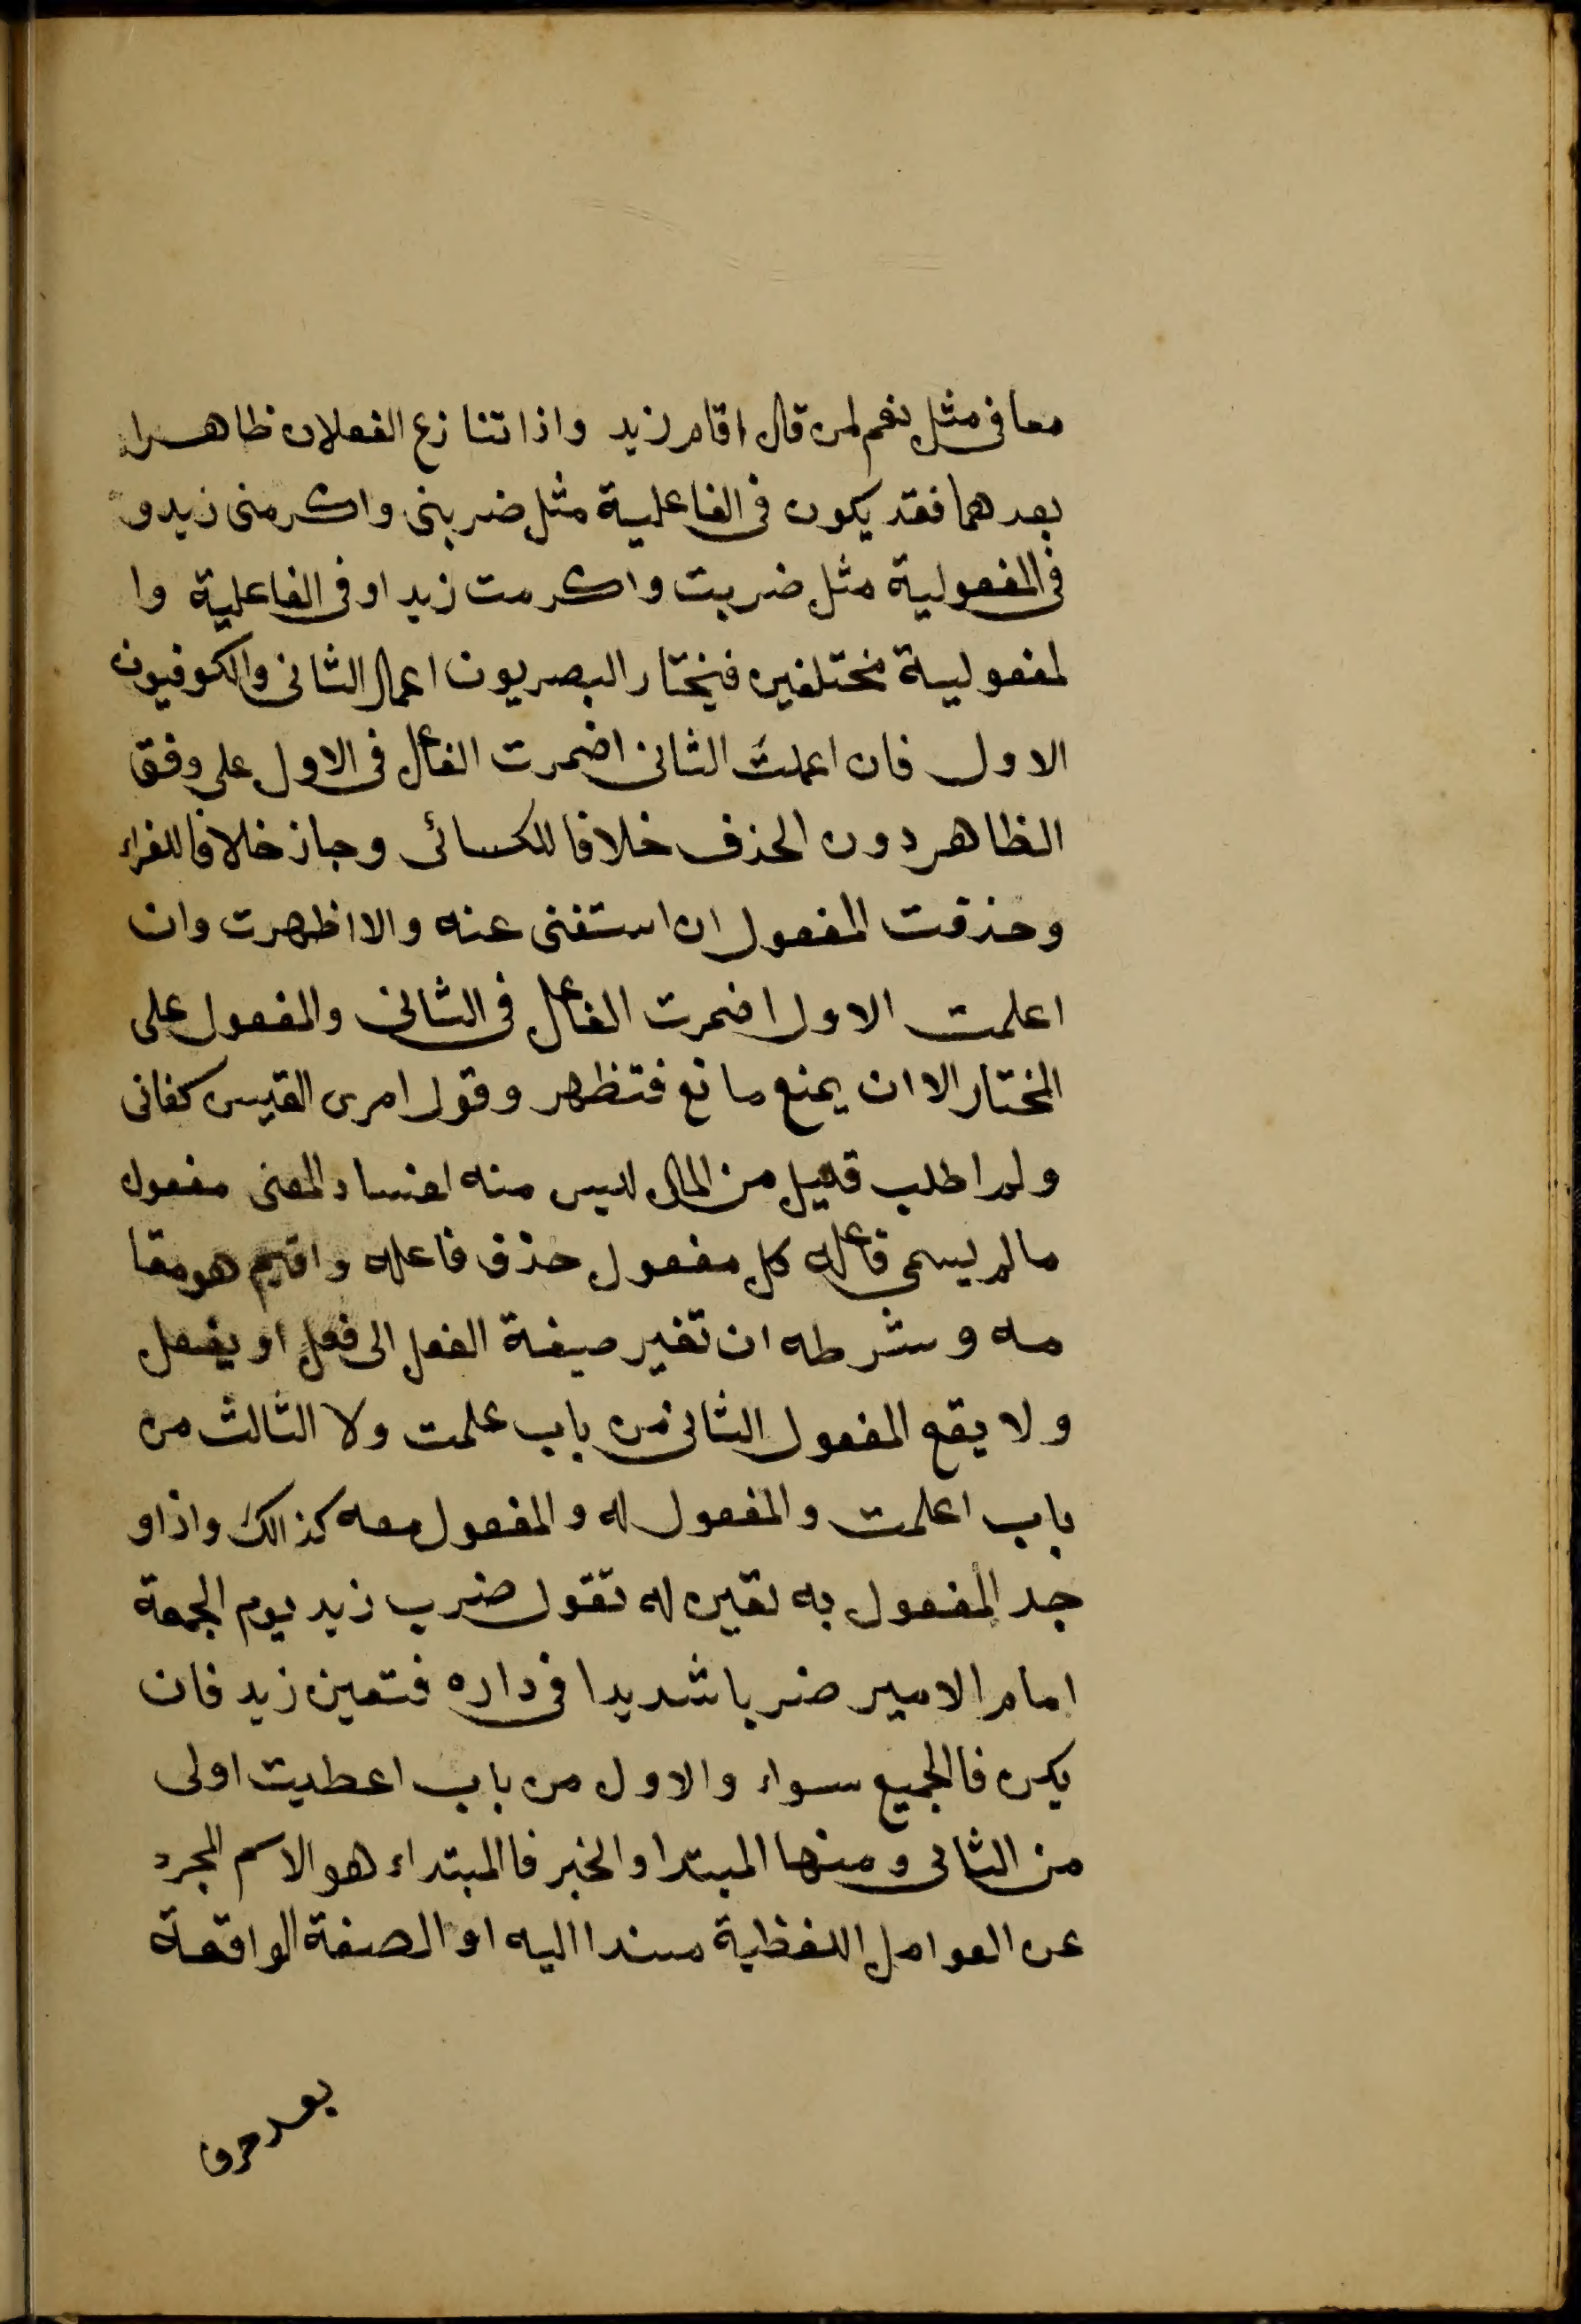 معا فى مثل نعم لمن قال اقام زيد واذا تنازع الفعلان ظاهرا
بعدهما فقد يكون فى الفاعلية مثل ضربنى واكرمنى زيد و
فى المفعولية مثل ضربت واكرمت زيدا وفى الفاعلية وا
لمفعولية مختلفين فيختار البصريون اعمال الثانى والكوفيون
الاول فان اعملت الثانى اضمرت الفاعل فى الاول على وفق
الظاهر دون الحذف خلافا للكسائى وجاز خلافا للفراء
وحذفت المفعول ان استغنى عنه والا اظهرت وان
اعلمت الاول اضمرت الفاعل فى الثانى والمفعول على
المختار الا ان يمنع مانع فتظهر وقول امرى القيس كفانى
ولم اطلب قليل من المال ليس منه لفساد المعنى مفعول
مالم يسمى فاعله كل مفعول حذف فاعله واقيم هو مقا
مه وشرطه ان تغير صيغة الفعل الى فعل او يفعل
ولا يقع المفعول الثانى من باب علمت ولا الثالث من
باب اعلمت والمفعول له والمفعول معه كذالك واذا و
جد المفعول به تعين له تقول ضرب زيد يوم الجمعة
امام الامير ضربا شديدا فى داره فتعين زيد فان
يكن فالجميع سواء والاول من باب اعطيت اولى
من الثانى ومنها المبتدا والخبر فا المبتداء هو الاسم المجرد
عن العوامل اللفظية مسندا اليه او الصفة الواقعة
بعد حرف